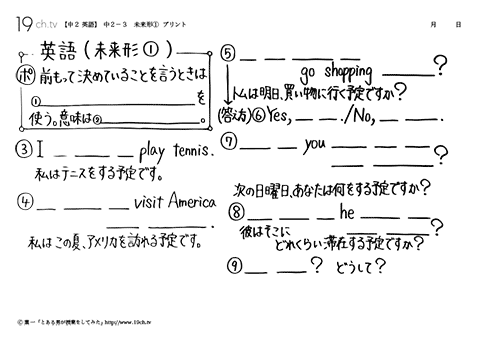 19ch.tv 【中2 英語】 中2-3 未来形① プリント 月 日
英語(未来形①)
ポ 前もって決めていることを言うときは
① を
使う。意味は② 。
③ I play tennis.
私はテニスをする予定です。
④ visit America
.
私はこの夏、アメリカを訪れる予定です。
⑤
go shopping ?
トムは明日、買い物に行く予定ですか?
(答え方)⑥ Yes, . / No, .
⑦ you
?
次の日曜日、あなたは何をする予定ですか?
⑧ he
?
彼はそこに
どれくらい滞在する予定ですか?
⑨ ? どうして?
© 葉一「とある男が授業をしてみた」http://www.19ch.tv